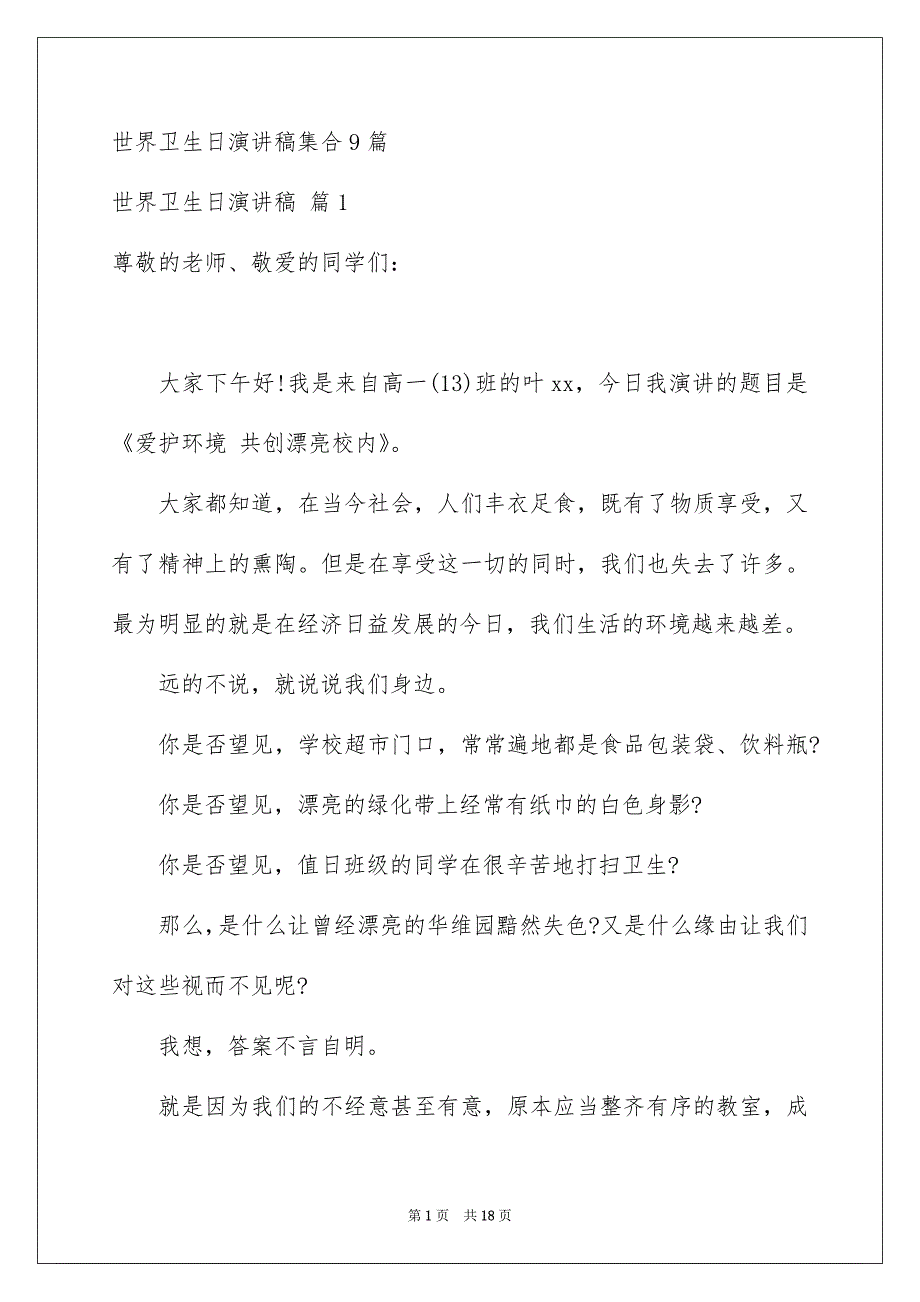 世界卫生日演讲稿集合 9 篇
世界卫生日演讲稿 篇 1
尊敬的老师、敬爱的同学们：
大家下午好!我是来自高一(13)班的叶 xx，今日我演讲的题目是
《爱护环境 共创漂亮校内》。
大家都知道，在当今社会，人们丰衣足食，既有了物质享受，又
有了精神上的熏陶。但是在享受这一切的同时，我们也失去了许多。
最为明显的就是在经济日益发展的今日，我们生活的环境越来越差。
远的不说，就说说我们身边。
你是否望见，学校超市门口，常常遍地都是食品包装袋、饮料瓶?
你是否望见，漂亮的绿化带上经常有纸巾的白色身影?
你是否望见，值日班级的同学在很辛苦地打扫卫生?
那么,是什么让曾经漂亮的华维园黯然失色?又是什么缘由让我们
对这些视而不见呢?
我想，答案不言自明。
就是因为我们的不经意甚至有意，原本应当整齐有序的教室，成
第 1 页 共 18 页